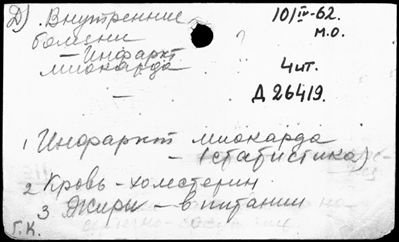 Д). Внутренние
болезни
— Инфаркт
миокарда
10/IV-62.
м.о.
" " 4 ит.
Д 26419.
1 Инфаркт миокарда
- (статистика)
2 Кровь - холестерин
3 Жиры - в питании
Г.К.